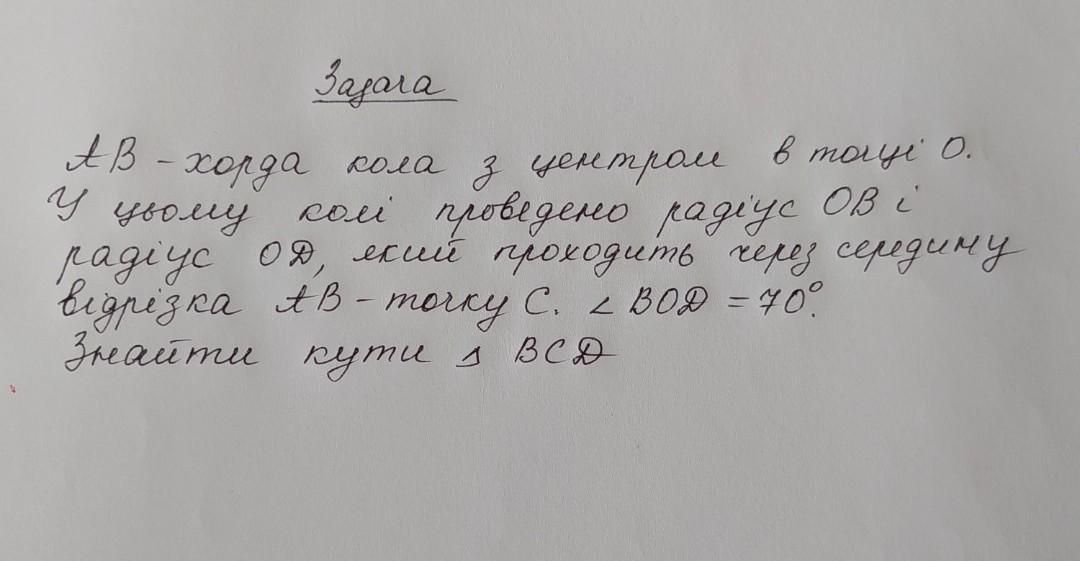 Задача
АВ - хорда кола з центром в точці О.
У цьому колі проведено радіус ОВ і
радіус ОД, який проходить через середину
відрізка АВ - точку С. ∠ ВОД = 70°.
Знайти кути △ ВСД